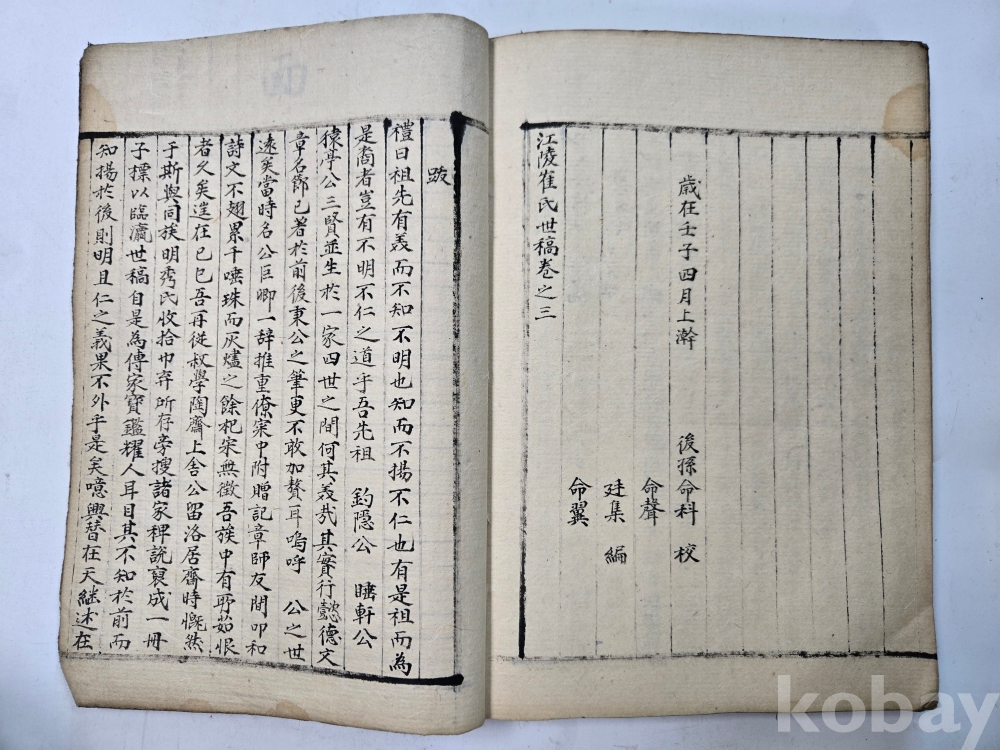 歲在壬子四月上澣
後孫命科 校
命聲
廷集 編
命翼
江陵崔氏世稿卷之三
跋
禮曰祖先有義而不知不明也知而不揚不仁也有是祖而為
是裔者豈有不明不仁之道乎吾先祖 釣隱公 睡軒公
猿亭公三賢並生於一家四世之間何其義哉其實行懿德文
章名節已著於前後秉公之筆更不敢加贅耳嗚呼 公之世
遠矣當時名公巨卿一辞推重僚寀中附贈記章師友間叩和
詩文不翅累千唾珠而灰燼之餘杞宋無徵吾族中有所茹恨
者久矣逞在己巳吾再從叔學陶齋上舍公留洛居齋時慨然
于斯與同族明秀氏收拾巾弃所存旁搜諸家稗說裒成一冊
子標以臨瀛世稿自是為傳家寶鑑耀人耳目其不知於前而
知揚於後則明且仁之義果不外乎是矣噫興替在天継述在
kobay